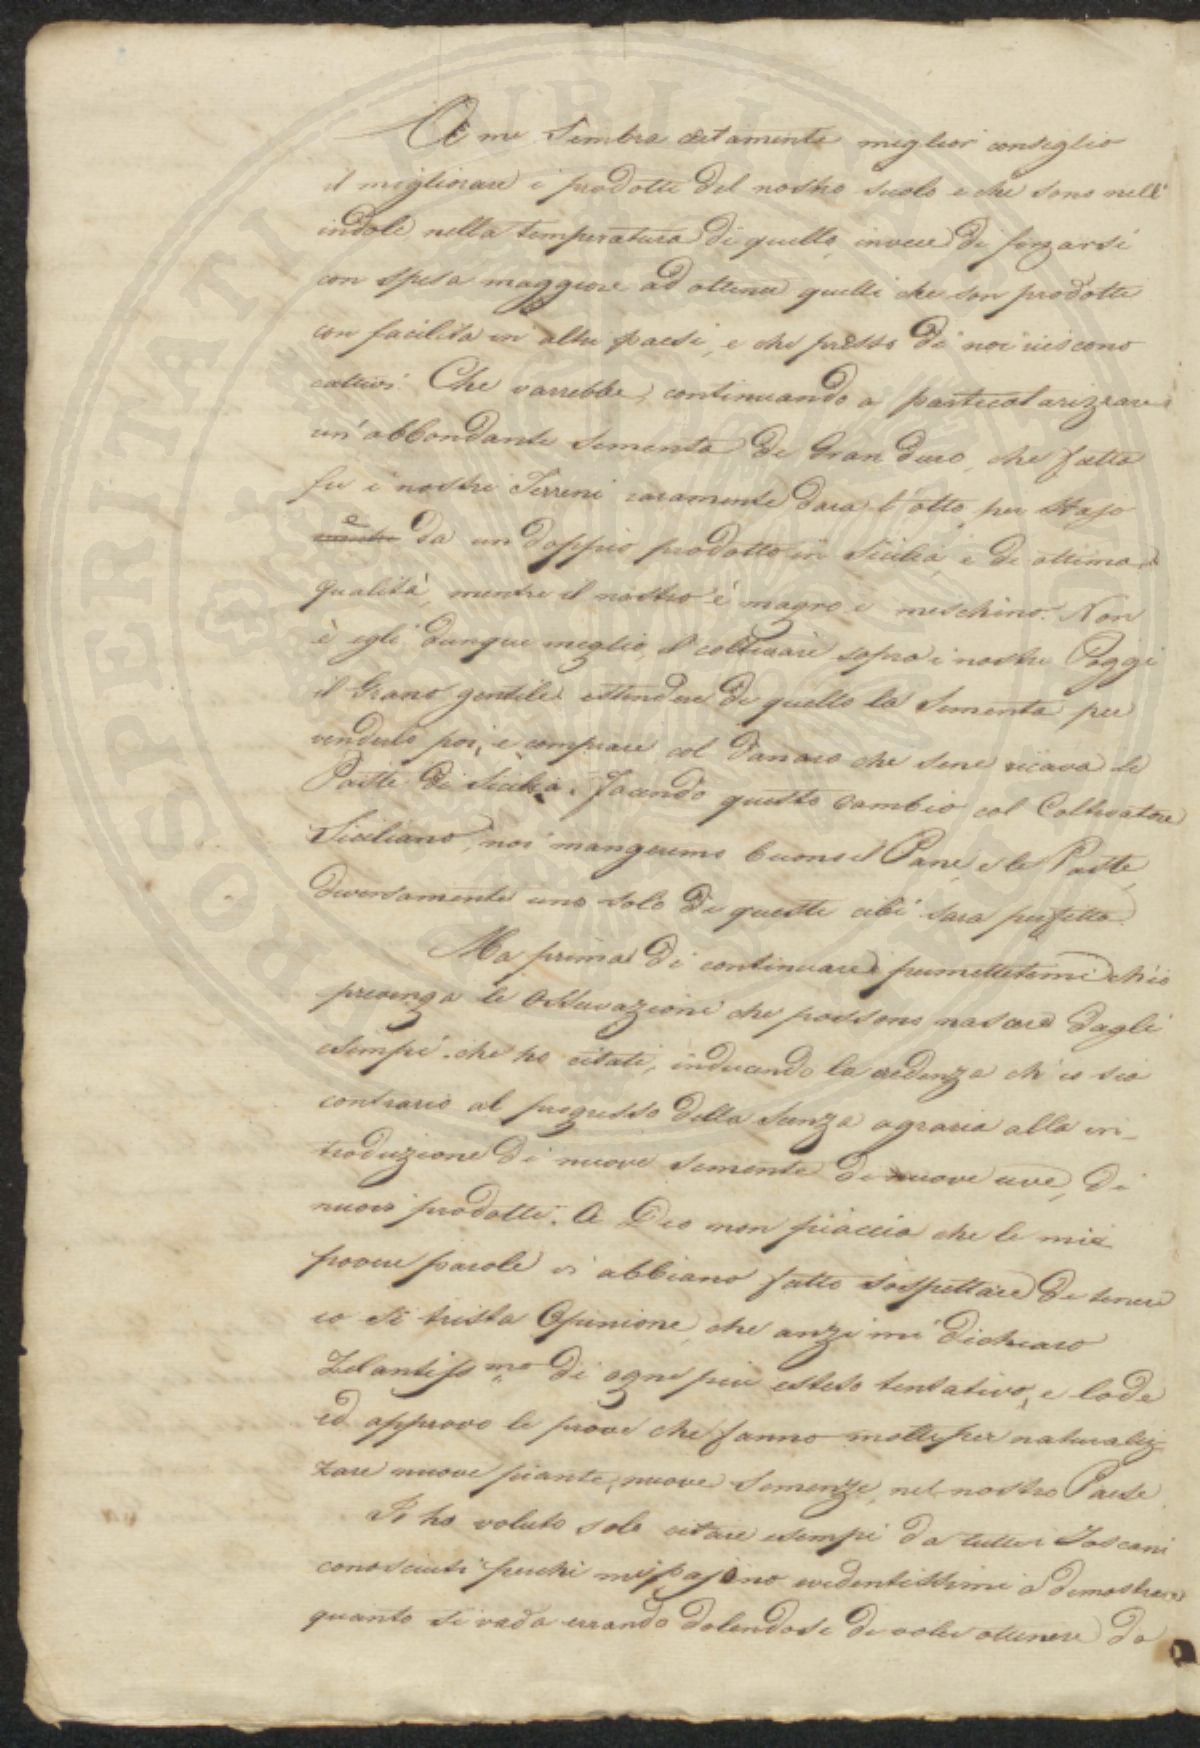 A me sembra certamente miglior consiglio
il migliorare i prodotti del nostro suolo e che sono nell'
indole, nella temperatura di quello, invece di forzarsi
con spesa maggiore ad ottener quelli che son prodotti
con facilità in altri paesi, e che presso di noi riescono
cattivi. Che varrebbe, continuando a particolarizzare
un'abbondante sementa di Gran duro, che fatta
fu i nostri Terreni raramente darà l'otto per stajo
e da un doppio prodotto in Sicilia, e di ottima
qualità, mentre il nostro è magro e meschino. Non
è egli dunque meglio, il coltivare sopra i nostri Poggi
il Grano gentile estendere di quello la Sementa per
venderlo poi, e comprare col danaro che sene ricava le
Paste di Sicilia. Facendo questo cambio col Coltivatore
Siciliano, noi mangeremo buono il Pane, e le Paste,
diversamente uno solo di questi cibi sarà perfetto.
Ma prima di continuare permettetemi ch'io
prevenga le Osservazioni che possono nascere dagli
esempi che ho citati, inducendo la credenza ch'io sia
contrario al progresso della Scenza agraria alla in-
troduzione di nuove sementi di nuove uve, di
nuovi prodotti. A Dio non piaccia che le mie
povere parole vi abbiano fatto sospettare di tenere
io sì trista Opinione, che anzi mi dichiaro
Zelantiss.mo di ogni più esteso tentativo, e lode
ed approvo le prove che fanno molti per naturaliz-
zare nuove piante, nuove Semenze, nel nostro Paese.
Io ho voluto solo citare esempi da tutti i Toscani
conosciuti perchè mi pajono evidentissimi a dimostrare
quanto si vada errando dolendosi di voler ottenere da